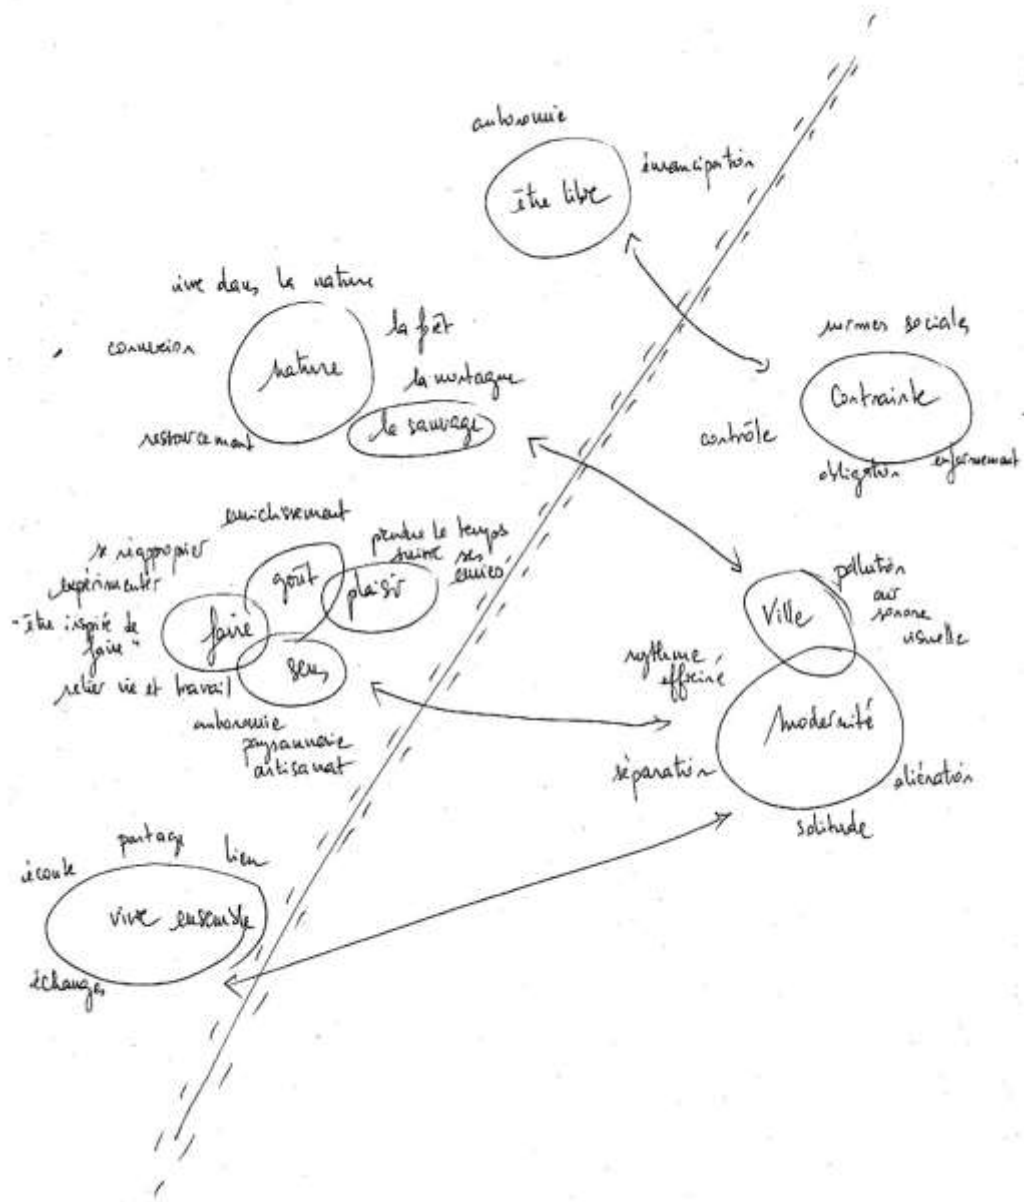 autonomie
être libre
émancipation
vivre dans la nature
connexion
nature
la forêt
la montagne
le sauvage
ressourcement
normes sociales
Contrainte
contrôle
obligation
enfermement
enrichissement
se réapproprier
expérimenter
"être inspiré de
faire"
relier vie et travail
goût
faire
plaisir
sens
prendre le temps
suivre ses
envies
autonomie
paysannerie
artisanat
Ville
pollution
air
sonore
visuelle
rythme
effréné
modernité
séparation
aliénation
solitude
partage
lien
écoute
vivre ensemble
échanges